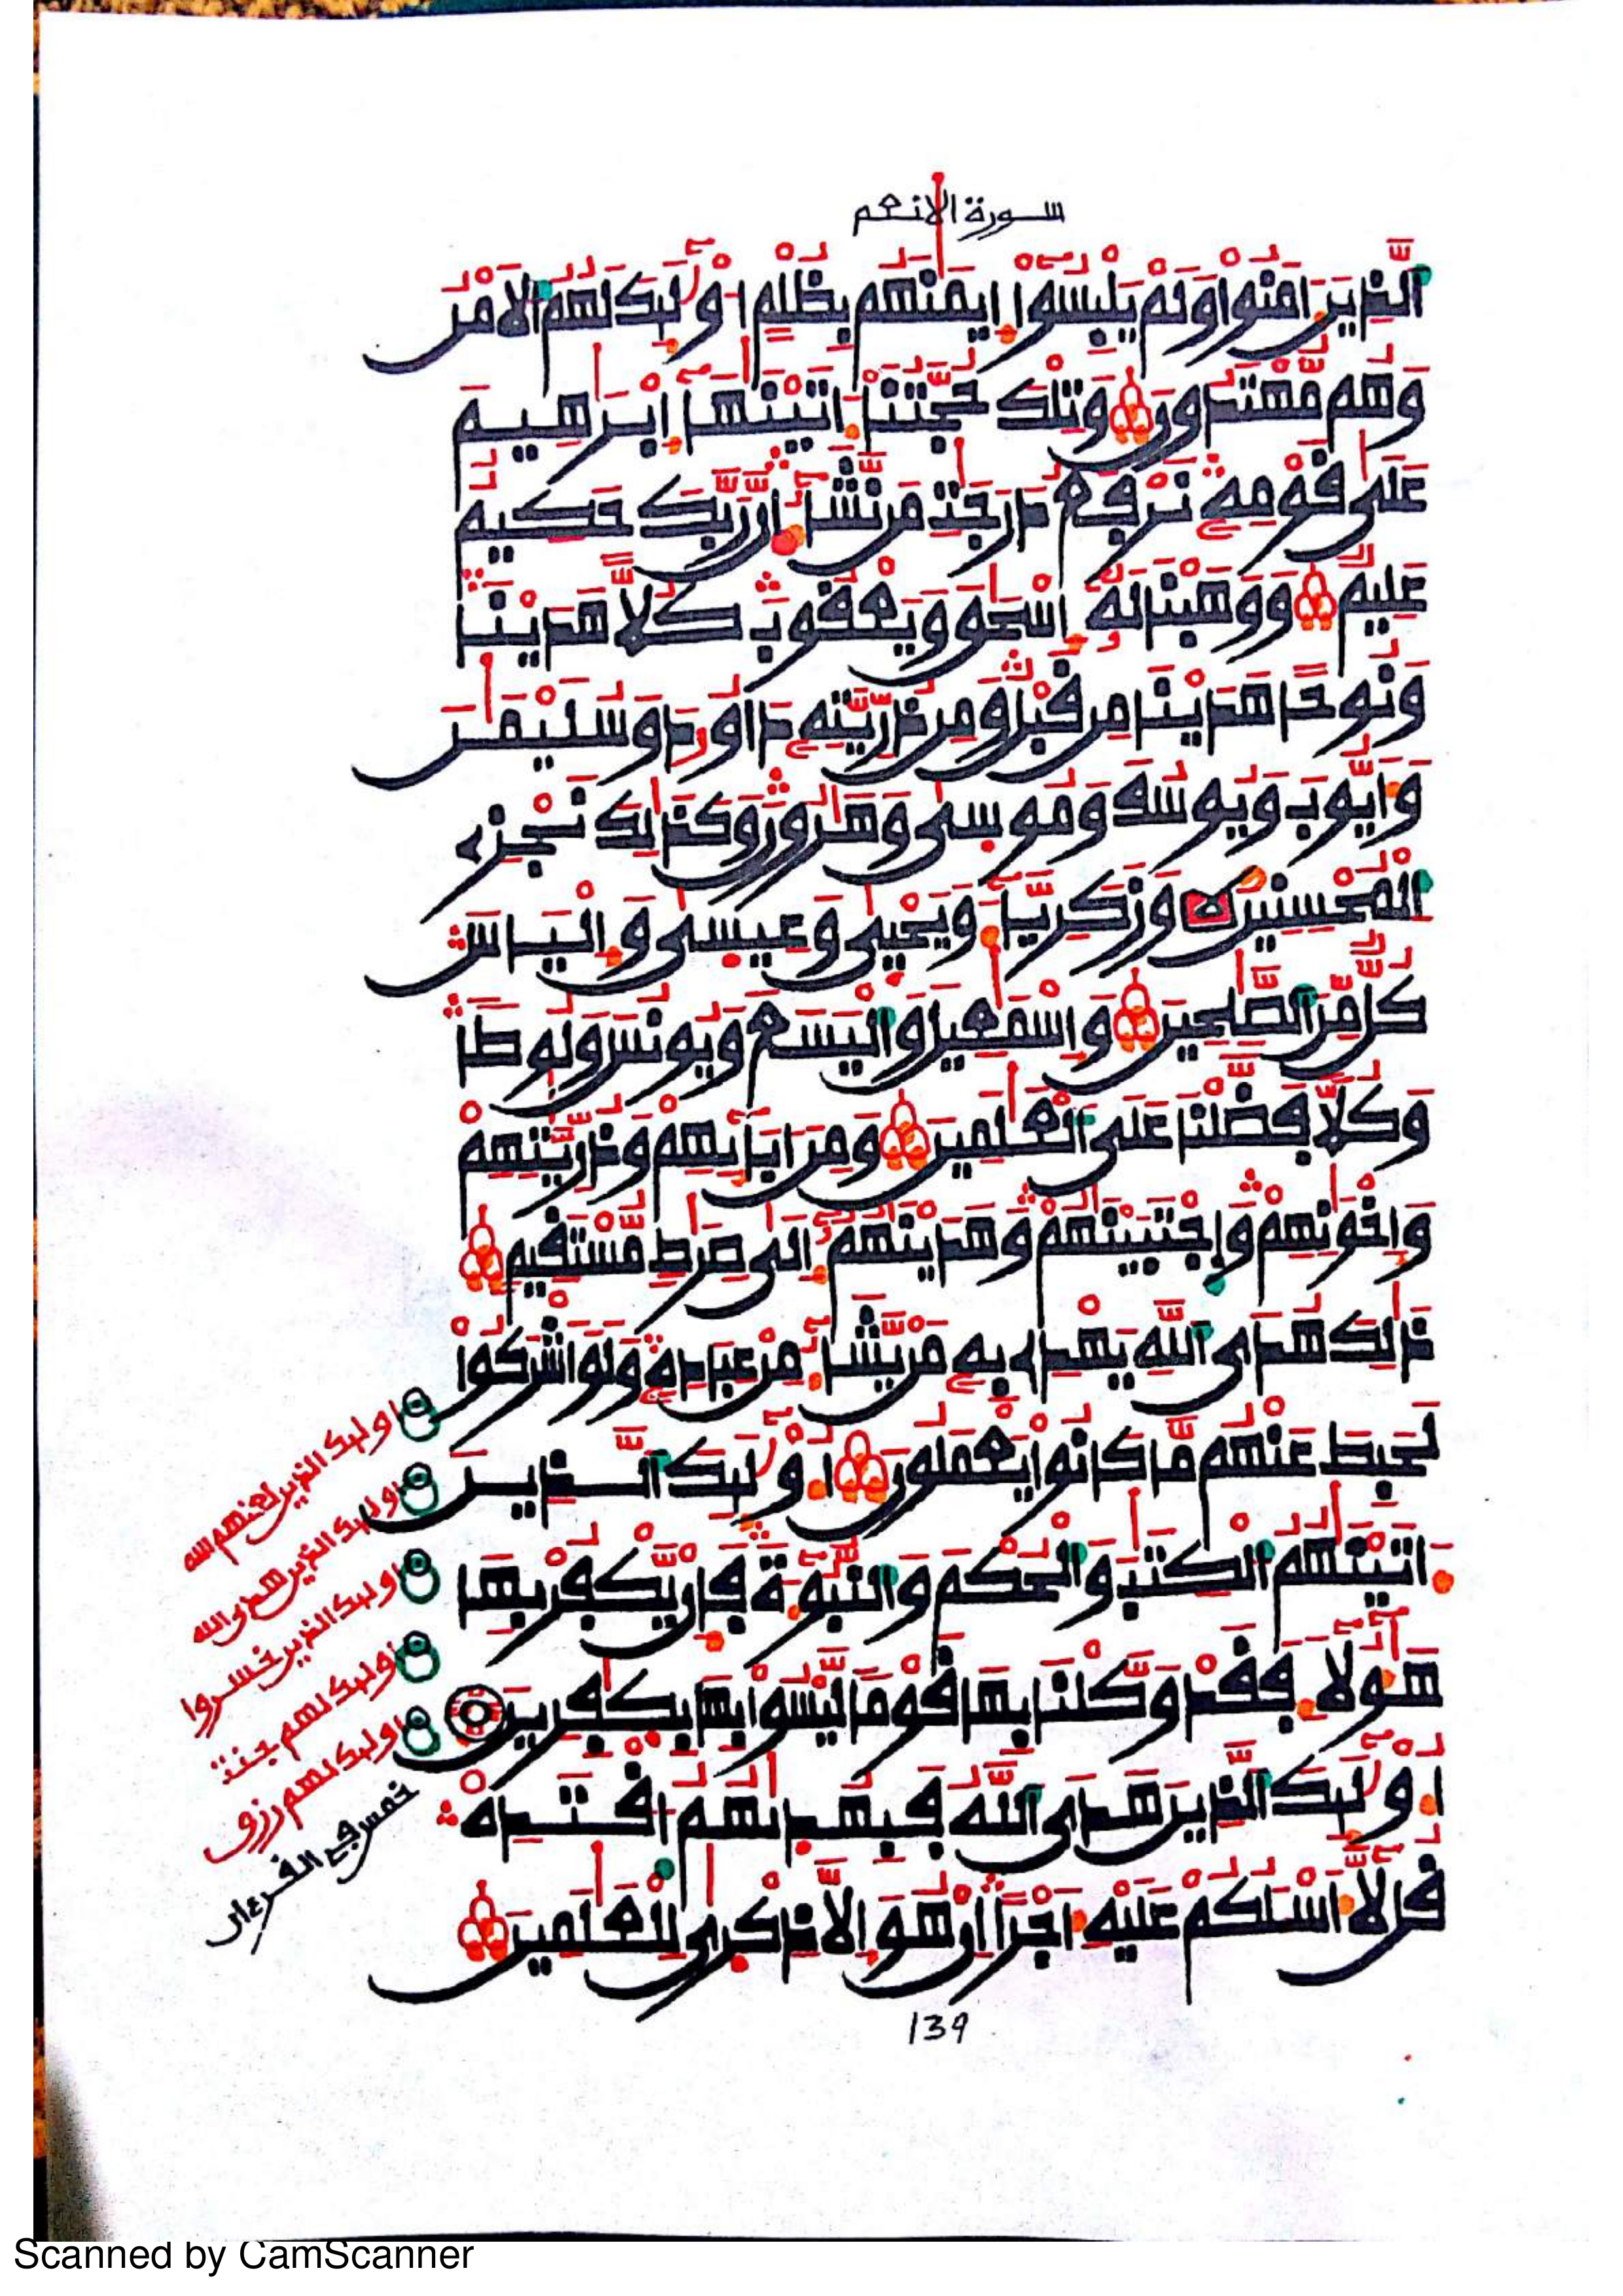 سورة الانعم
الذِينَ ءَامَنُوا وَلَمْ يَلْبِسُوٓا إِيمَٰنَهُم بِظُلْمٍ ا۟وْلَٰٓئِكَ لَهُمُ الَامْنُ
وَهُم مُّهْتَدُونَ وَتِلْكَ حُجَّتُنَآ ءَاتَيْنَٰهَآ إِبْرَٰهِيمَ
عَلَىٰ قَوْمِهِۦ نَرْفَعُ دَرَجَٰتِ مَن نَّشَآءُ انَّ رَبَّكَ حَكِيمٌ
عَلِيمٌ وَوَهَبْنَا لَهُۥٓ إِسْحَٰقَ وَيَعْقُوبَ كُلّاً هَدَيْنَا
وَنُوحاً هَدَيْنَا مِن قَبْلُ وَمِن ذُرِّيَّتِهِۦ دَاوُۥدَ وَسُلَيْمَٰنَ
وَأَيُّوبَ وَيُوسُفَ وَمُوسَىٰ وَهَٰرُونَ وَكَذَٰلِكَ نَجْزِے
الْمُحْسِنِينَ وَزَكَرِيَّآءَ وَيَحْيَىٰ وَعِيسَىٰ وَإِلْيَاسَ
كُلٌّ مِّنَ الصَّٰلِحِينَ وَإِسْمَٰعِيلَ وَالْيَسَعَ وَيُونُسَ وَلُوطاً
وَكُلّاً فَضَّلْنَا عَلَى الْعَٰلَمِينَ وَمِنَ ابَآئِهِمْ وَذُرِّيَّٰتِهِمْ
وَإِخْوَٰنِهِمْ وَاجْتَبَيْنَٰهُمْ وَهَدَيْنَٰهُمُۥٓ إِلَىٰ صِرَٰطٍ مُّسْتَقِيمٍ
ذَٰلِكَ هُدَى اللَّهِ يَهْدِے بِهِۦ مَنْ يَّشَآءُ مِنْ عِبَادِهِۦ وَلَوَ اشْرَكُوا
لَحَبِطَ عَنْهُم مَّا كَانُوا يَعْمَلُونَ ا۟وْلَٰٓئِكَ الذِينَ
ءَاتَيْنَٰهُمُ الْكِتَٰبَ وَالْحُكْمَ وَالنُّبُوٓءَةَ فَإِنْ يَّكْفُرْ بِهَا
هَٰٓؤُلَآءِ فَقَدْ وَكَّلْنَا بِهَا قَوْماً لَّيْسُوا بِهَا بِكَٰفِرِينَ
ا۟وْلَٰٓئِكَ الذِينَ هَدَى اللَّهُ فَبِهُدَىٰهُمُ اقْتَدِهْ
قُل لَّآ أَسْـَٔلُكُمْ عَلَيْهِ أَجْراً انْ هُوَ إِلَّا ذِكْرَىٰ لِلْعَٰلَمِينَ
اولىك الذين لعنهم الله
اولىك الذين هدى الله
اولىك الذين خسروا
اولىك لهم جنت
اولىك لهم رزق
خمس في القرءان
139
Scanned by CamScanner